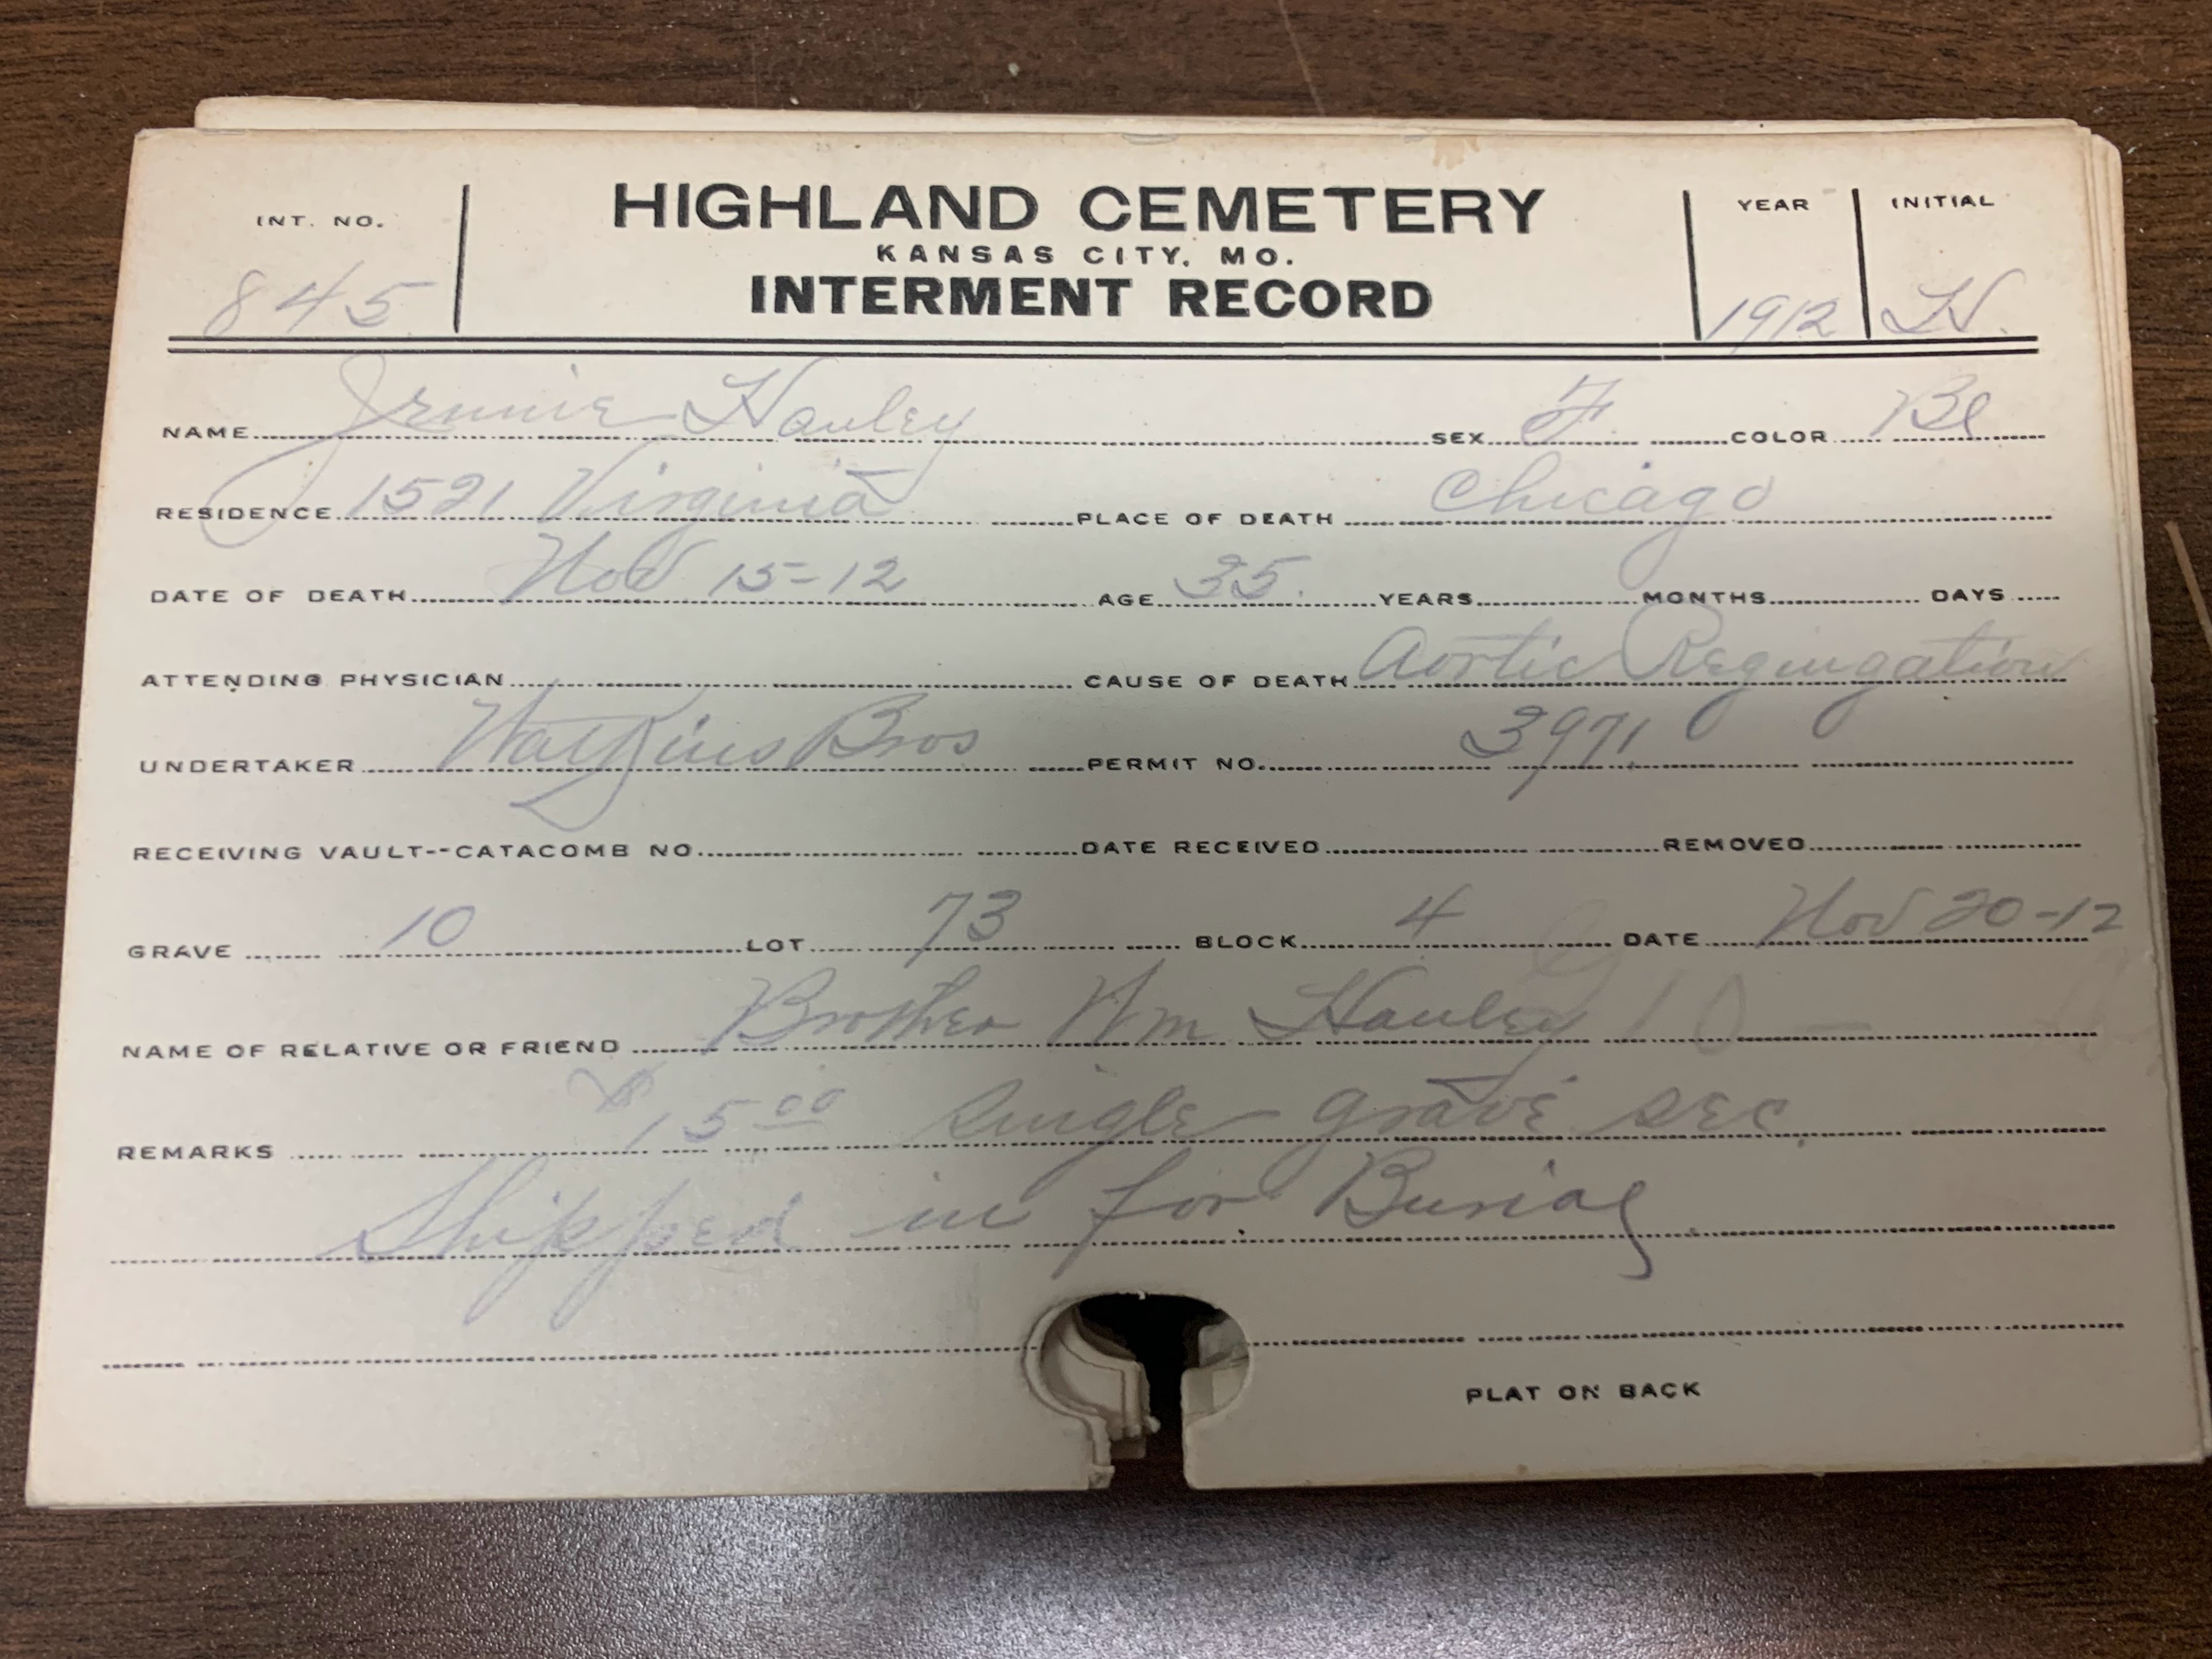 INT. NO. HIGHLAND CEMETERY YEAR INITIAL
KANSAS CITY, MO.
845 INTERMENT RECORD 1912 H.
NAME Jennie Hanley SEX F. COLOR Bl
RESIDENCE 1521 Virginia PLACE OF DEATH Chicago
DATE OF DEATH Nov 15-12 AGE 35. YEARS MONTHS DAYS
ATTENDING PHYSICIAN CAUSE OF DEATH Aortic Regurgation
UNDERTAKER Watkins Bros PERMIT NO. 3971
RECEIVING VAULT--CATACOMB NO. DATE RECEIVED REMOVED
GRAVE 10 LOT 73 BLOCK 4 DATE Nov 20-12
NAME OF RELATIVE OR FRIEND Brother Wm Hanley
REMARKS $15 00 Single Grave sec.
Shipped in for Burial
PLAT ON BACK